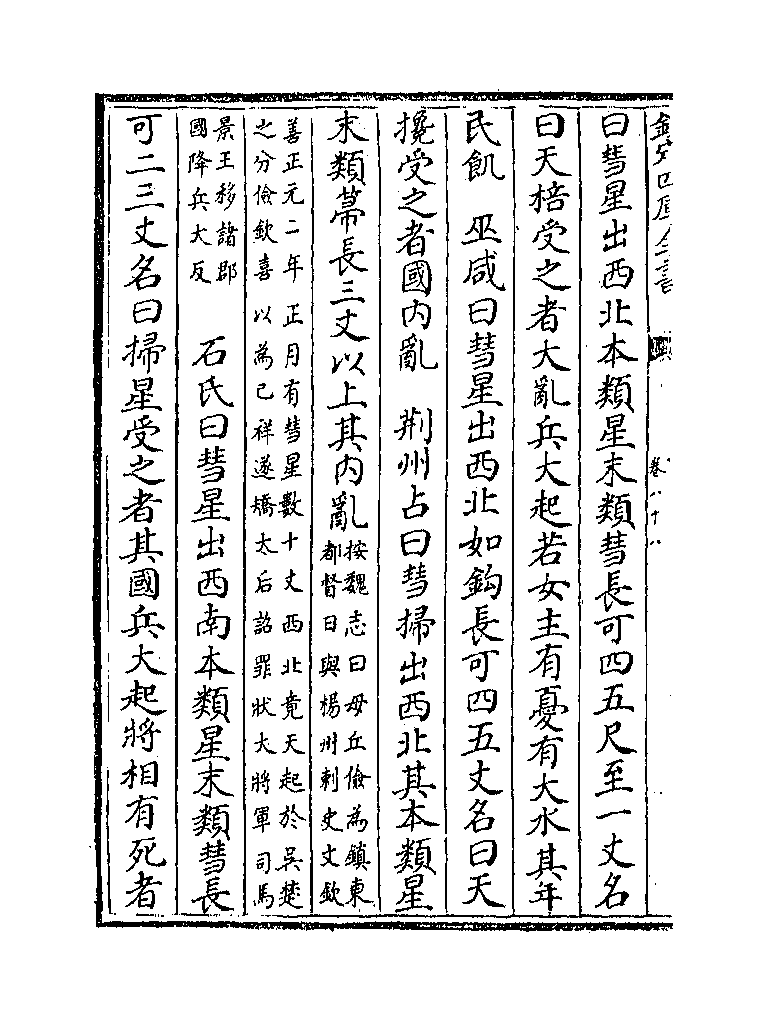 欽定四庫全書
卷八十八
曰彗星出西北本類星末類彗長可四五尺至一丈名
曰天棓受之者大亂兵大起若女主有憂有大水其年
民飢　巫咸曰彗星出西北如鈎長可四五丈名曰天
攙受之者國内亂　荆州占曰彗掃出西北其本類星
末類篲長三丈以上其内亂按魏志曰毋丘儉為鎮東都督日與楊州刺史文欽
善正元二年正月有彗星數十丈西北竟天起於吳楚之分儉欽喜以為己祥遂矯太后詔罪狀大將軍司馬
景王移諸郡國降兵大反　石氏曰彗星出西南本類星末類彗長
可二三丈名曰掃星受之者其國兵大起將相有死者